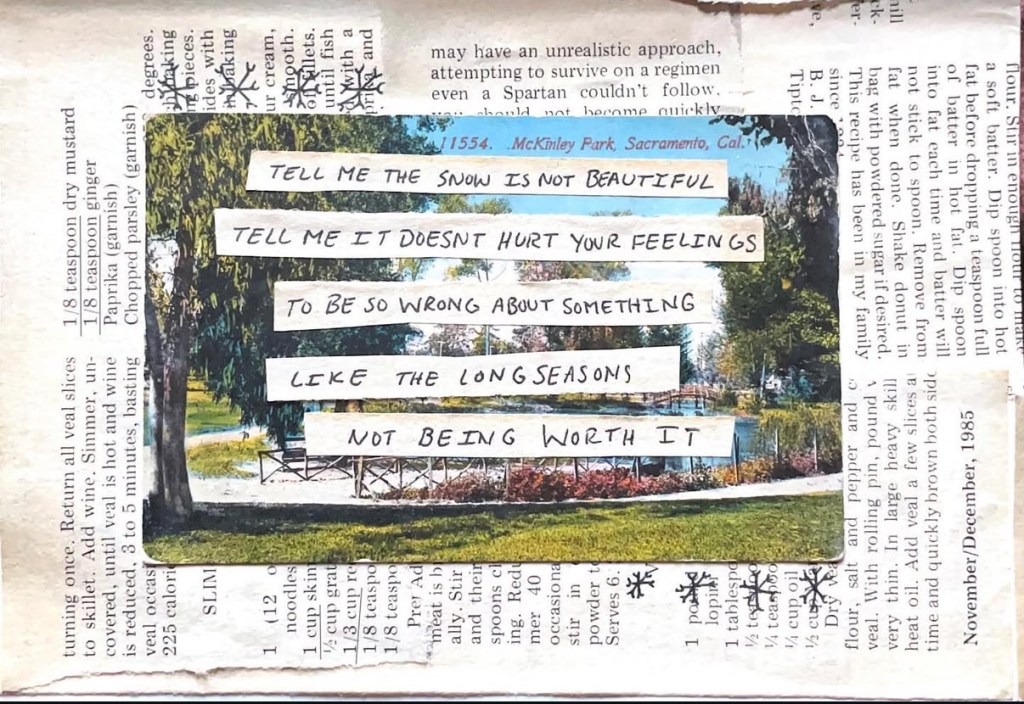 may have an unrealistic approach,
attempting to survive on a regimen
even a Spartan couldn't follow.
should not become quickly
11554. McKinley Park, Sacramento, Cal.
TELL ME THE SNOW IS NOT BEAUTIFUL
TELL ME IT DOESNT HURT YOUR FEELINGS
TO BE SO WRONG ABOUT SOMETHING
LIKE THE LONG SEASONS
NOT BEING WORTH IT
1/8 teaspoon dry mustard
1/8 teaspoon ginger
Paprika (garnish)
Chopped parsley (garnish)
degrees.
baking
pieces.
ides with
baking
ur cream,
smooth.
fillets.
until fish
with a
and
turning once. Return all veal slices
to skillet. Add wine. Simmer, un-
covered, until veal is hot and wine
is reduced, 3 to 5 minutes, basting
veal occas
225 calori
SLIM
1 (12 o
noodles
1 cup skim
½ cup grat
1/3 cup re
1/8 teaspo
1/8 teaspo
Pre Ad
meat is b
ally. Stir
and their
spoons cl
ing. Redu
mer 40
occasiona
stir in
powder t
Serves 6.
1
lopin
1 tablespo
½
¼
¼ cup oil
½ cup
Dry
flour, salt and pepper and
veal. With rolling pin, pound
very thin. In large heavy skill
heat oil. Add veal a few slices a
time and quickly brown both side
November/December, 1985
since
B. J.
Tipt
This recipe has been in my family
bag with powdered sugar if desired.
fat when done. Shake donut in
not stick to spoon. Remove from
into fat each time and batter will
of batter in hot fat. Dip spoon
fat before dropping a teaspoon full
a soft batter. Dip spoon into hot
flour. Stir in enough flour to make